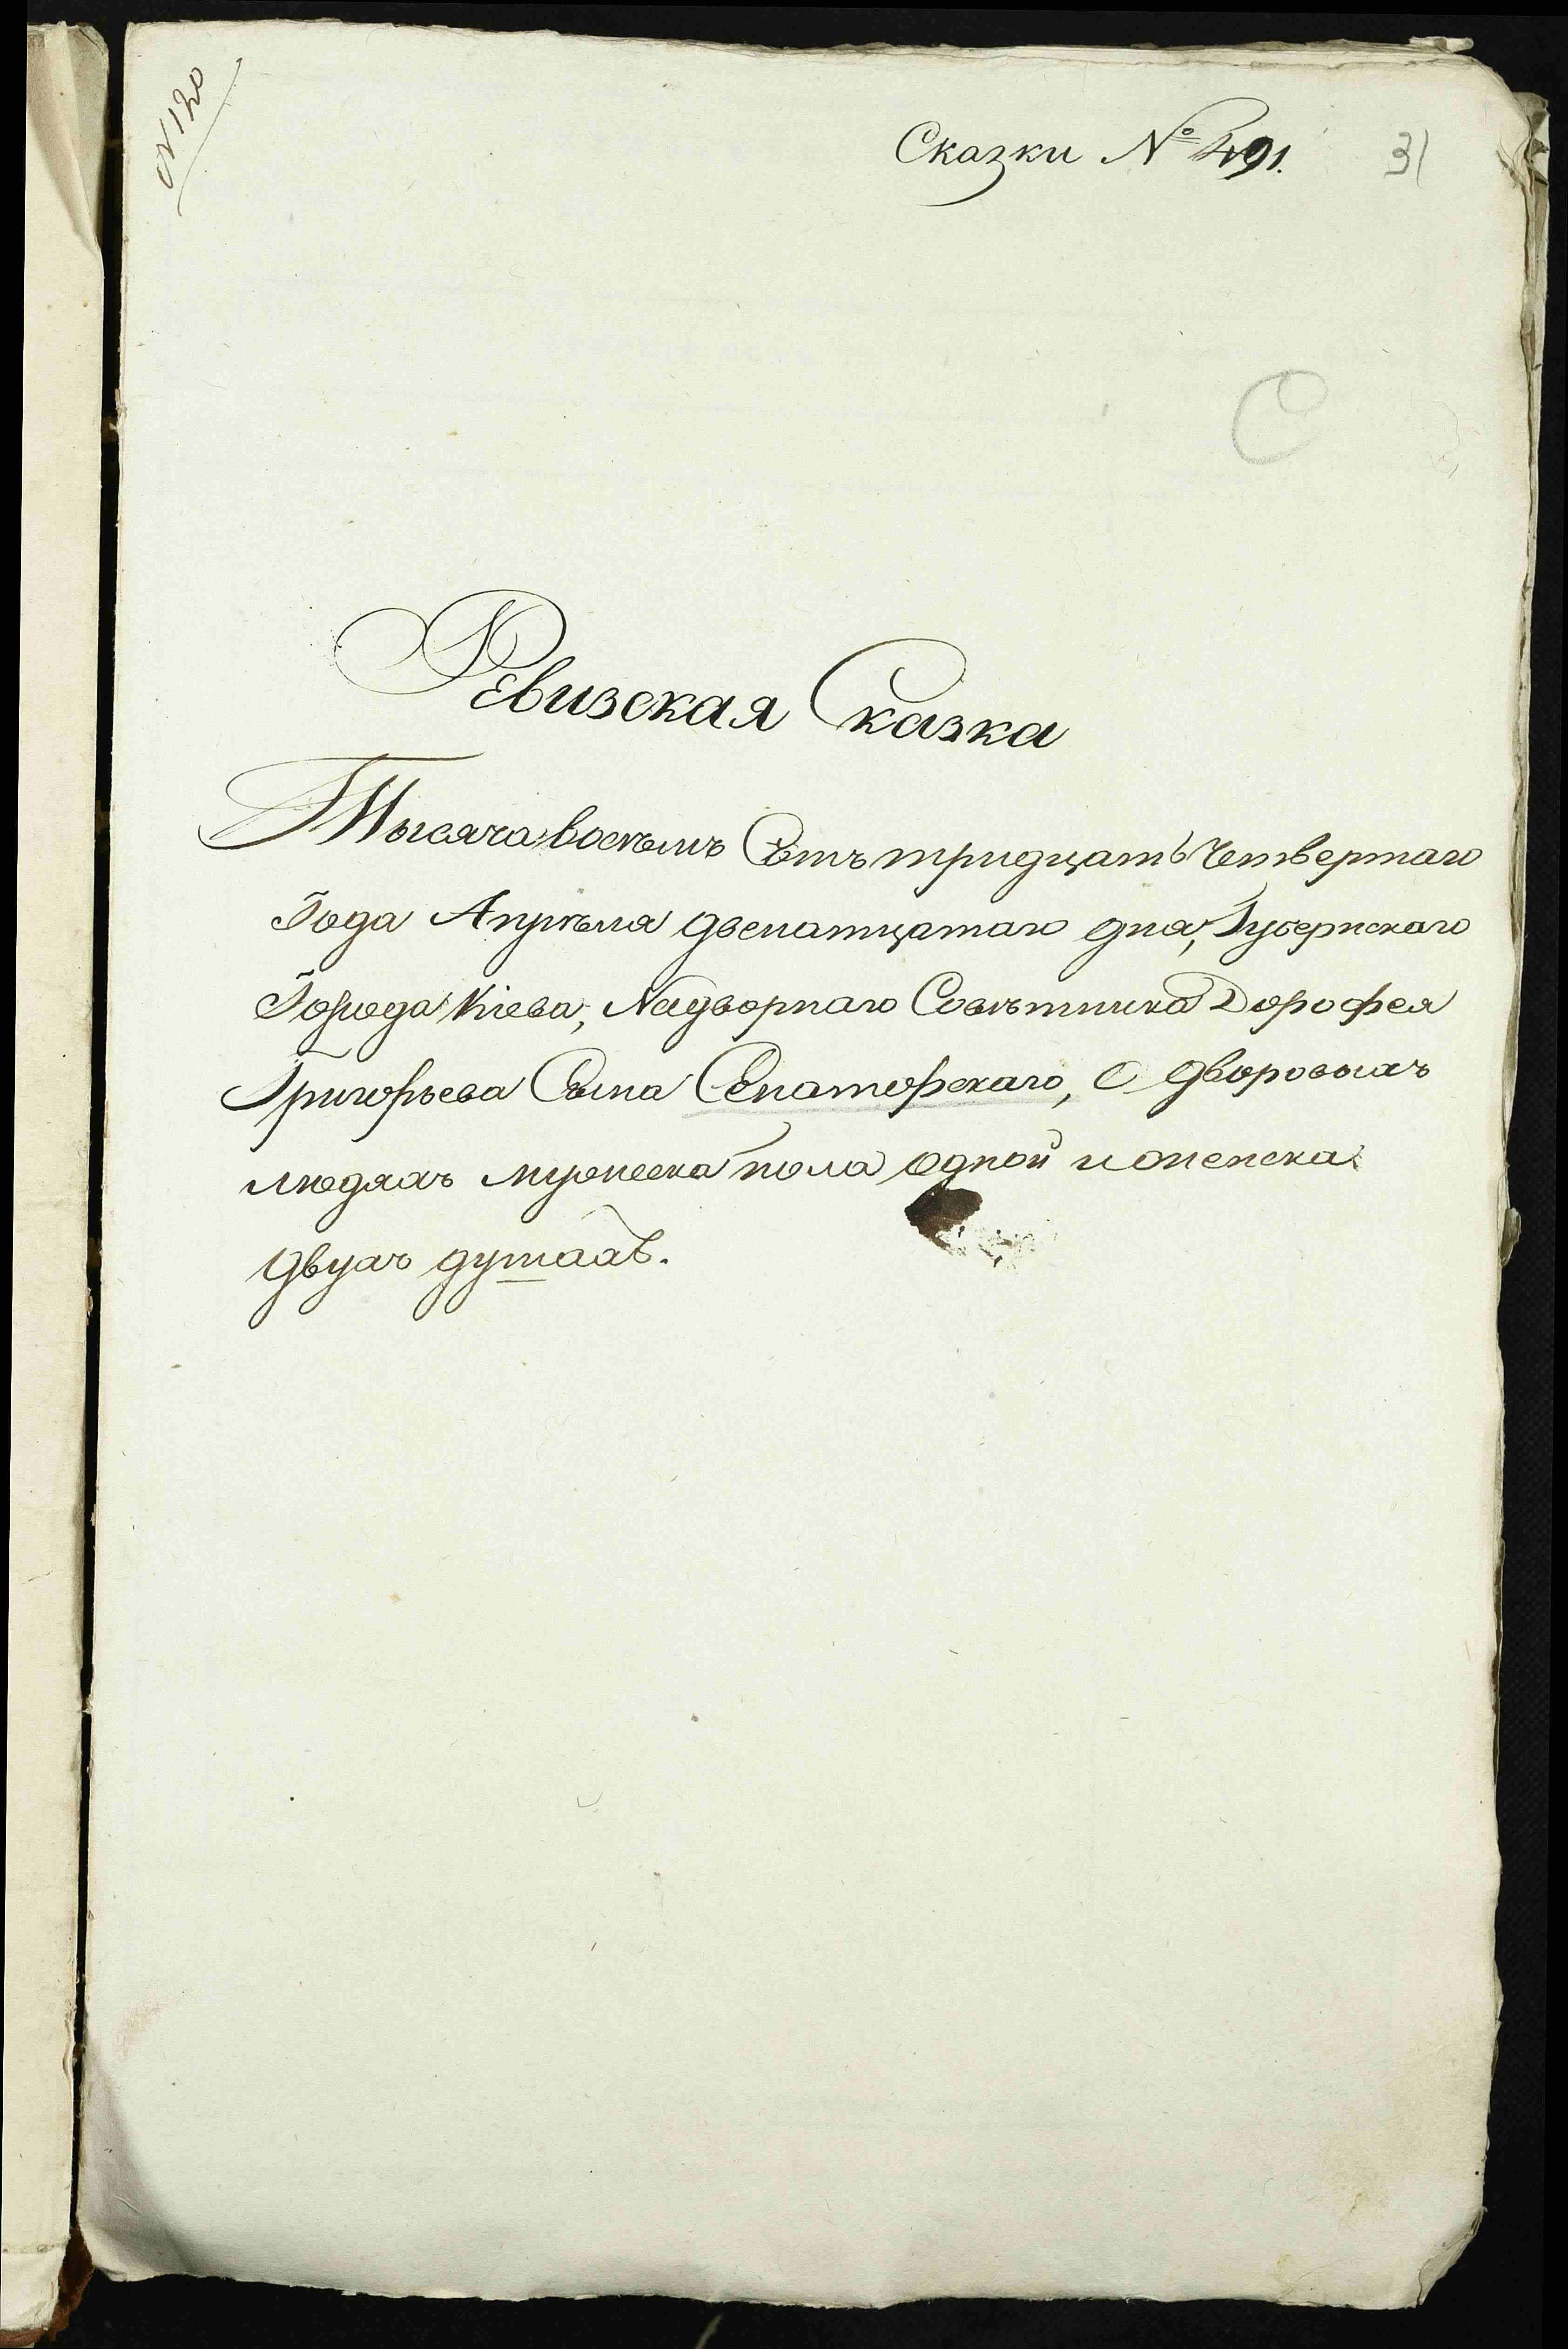 № 120
Сказки № 491.
31
С
Ревизская Сказка
Тысяча восемъ Сотъ тридцать Четвертаго
Года Апрѣля двенатцатаго дня, Губернскаго
Города Кіева, Надворнаго Совѣтника Дорофея
Григорьева Сына Сенаторскаго, О дворовыхъ
людяхъ мужеска пола одной и женска
двухъ душахъ.